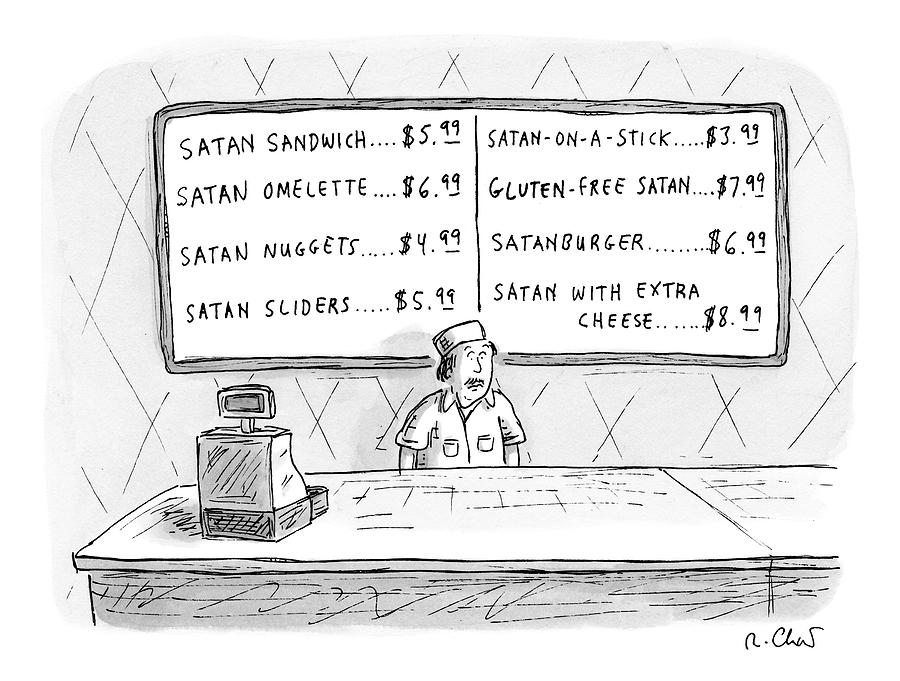 SATAN SANDWICH....$5.99
SATAN OMELETTE....$6.99
SATAN NUGGETS.....$4.99
SATAN SLIDERS.....$5.99
SATAN-ON-A-STICK.....$3.99
GLUTEN-FREE SATAN....$7.99
SATANBURGER.........$6.99
SATAN WITH EXTRA
CHEESE.......$8.99
R. Chast